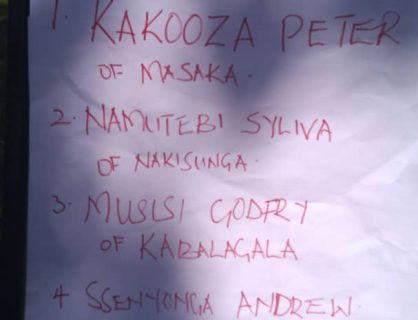 1. KAKOOZA PETER
OF MASAKA.
2. NAMUTEBI SYLIVA
OF NAKISUNGA.
3. MUSISI GODFRY
OF KABALAGALA
4 SSENYONGA ANDREW.